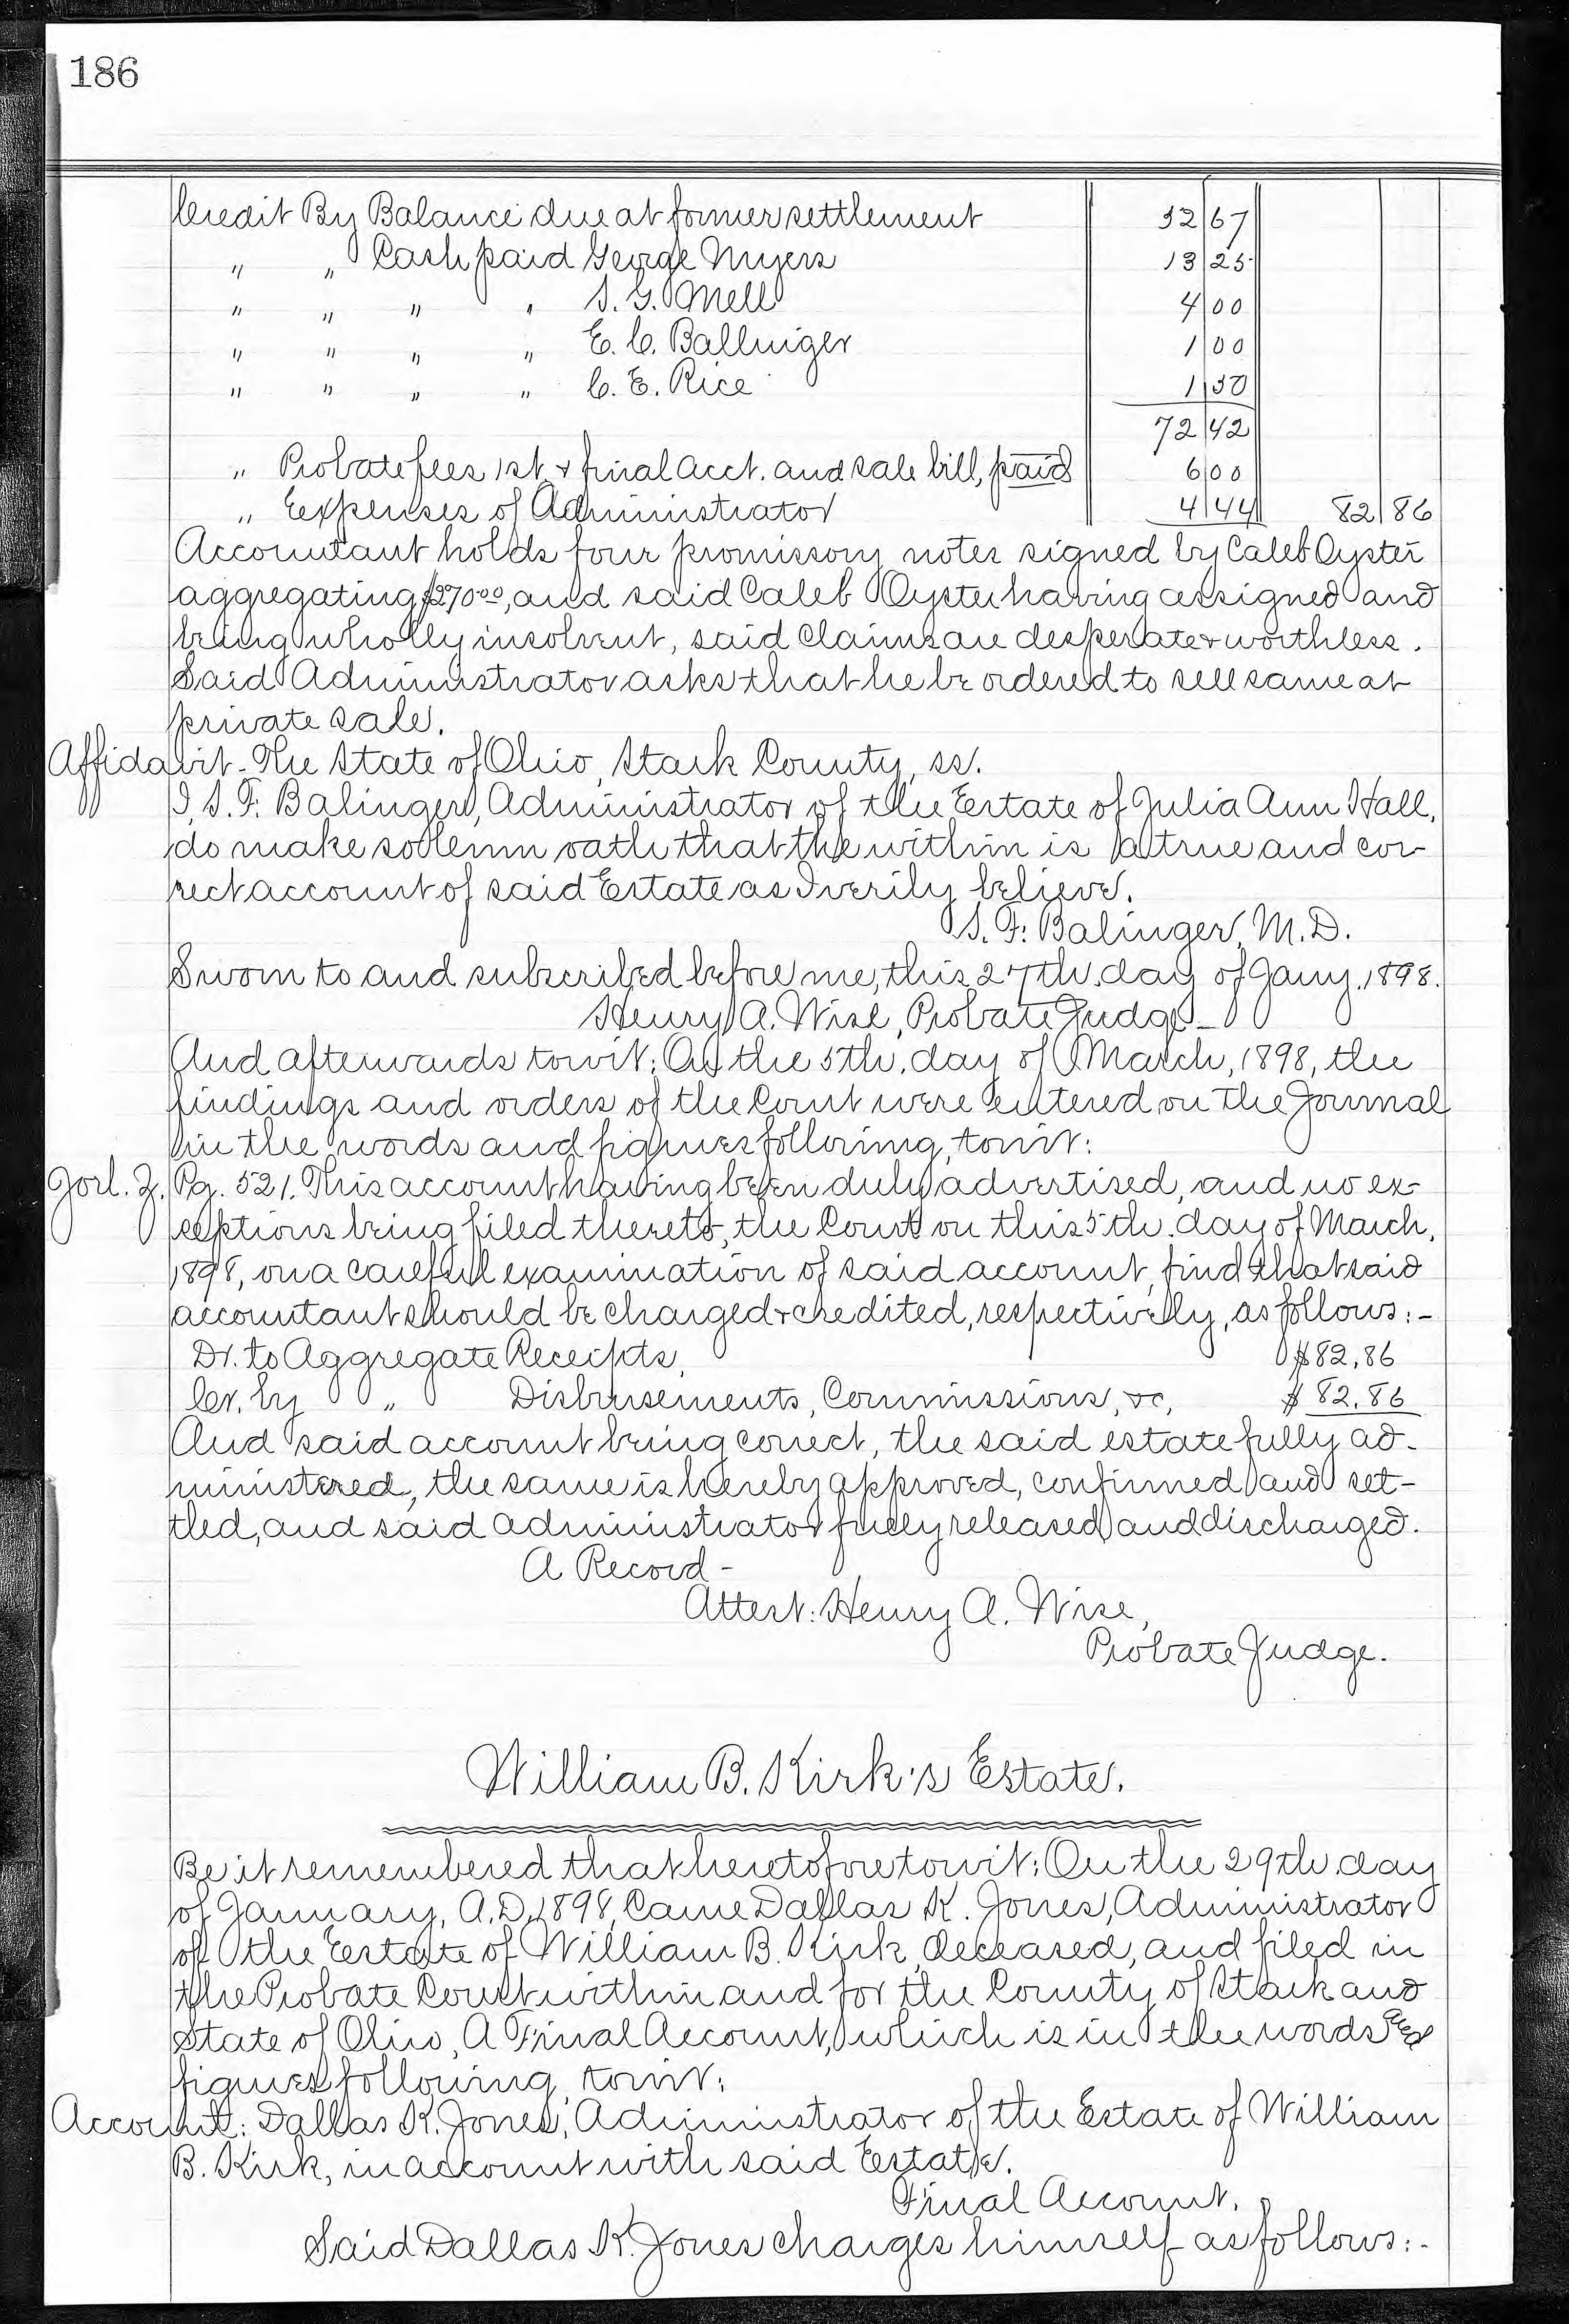 186
Credit By Balance due at former settlement 52 67
" " Cash paid George Myers 13 25
" " " " S. G. Mell 4 00
" " " " E. C. Ballinger 1 00
" " " " C. E. Rice 1 50
72 42
" Probate fees 1st. & final Acct. and sale bill, paid 6 00
" Expenses of Administrator 4 44 82 86
Accountant holds four promissory notes signed by Caleb Oyster
aggregating $270.00, and said Caleb Oyster having assigned and
being wholly insolvent, said claims are desperate & worthless.
Said Administrator asks that he be ordered to sell same at
private sale.
Affidavit - The State of Ohio, Stark County, ss.
I, S. F. Balinger, Administrator of the Estate of Julia Ann Hall,
do make solemn oath that the within is a true and cor-
rect account of said Estate as I verily believe.
S. F. Balinger, M.D.
Sworn to and subscribed before me, this 27th. day of Jany. 1898.
Henry A. Wise, Probate Judge -
And afterwards towit: On the 5th. day of March, 1898, the
findings and orders of the Court were entered on the Journal
in the words and figures following, towit:
Jorl. Z. Pg. 521. This account having been duly advertised, and no ex-
ceptions being filed thereto, the Court on this 5th. day of March,
1898, on a careful examination of said account, find that said
accountant should be charged & credited, respectively, as follows:-
Dr. to Aggregate Receipts, $82,86
Cr. by " Disbursements, Commissions, &c, $82.86
And said account being correct, the said estate fully ad-
ministered, the same is hereby approved, confirmed and set-
tled, and said administrator fully released and discharged.
A Record -
Attest: Henry A. Wise,
Probate Judge.
William B. Kirk's Estate.
Be it remembered that heretofore towit: On the 29th day
of January, A.D. 1898, Came Dallas K. Jones, Administrator
of the Estate of William B. Kirk, deceased, and filed in
the Probate Court within and for the County of Stark and
State of Ohio, A Final Account, which is in the words and
figures following, towit:
Account: Dallas K. Jones, Administrator of the Estate of William
B. Kirk, in account with said Estate.
Final Account.
Said Dallas K. Jones charges himself as follows:-